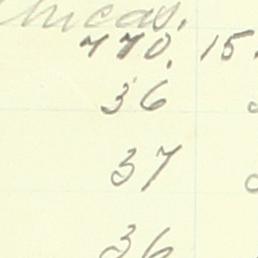 770. 15.
36
37
36